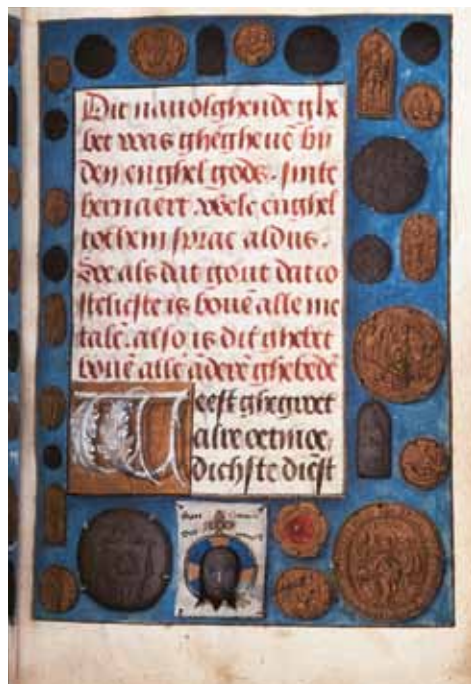 Dit nauolghende ghe
bet was ghegheuē bi
den enghel gods. sinte
bernaert. welc enghel
tot hem sprac aldus.
Soe als dat gout dat co
stelicste is bouē alle me
talē. also is dit ghebet
bouē alle ādere ghebedē
Weest ghegroet
alre oetmoe
dichste diēst